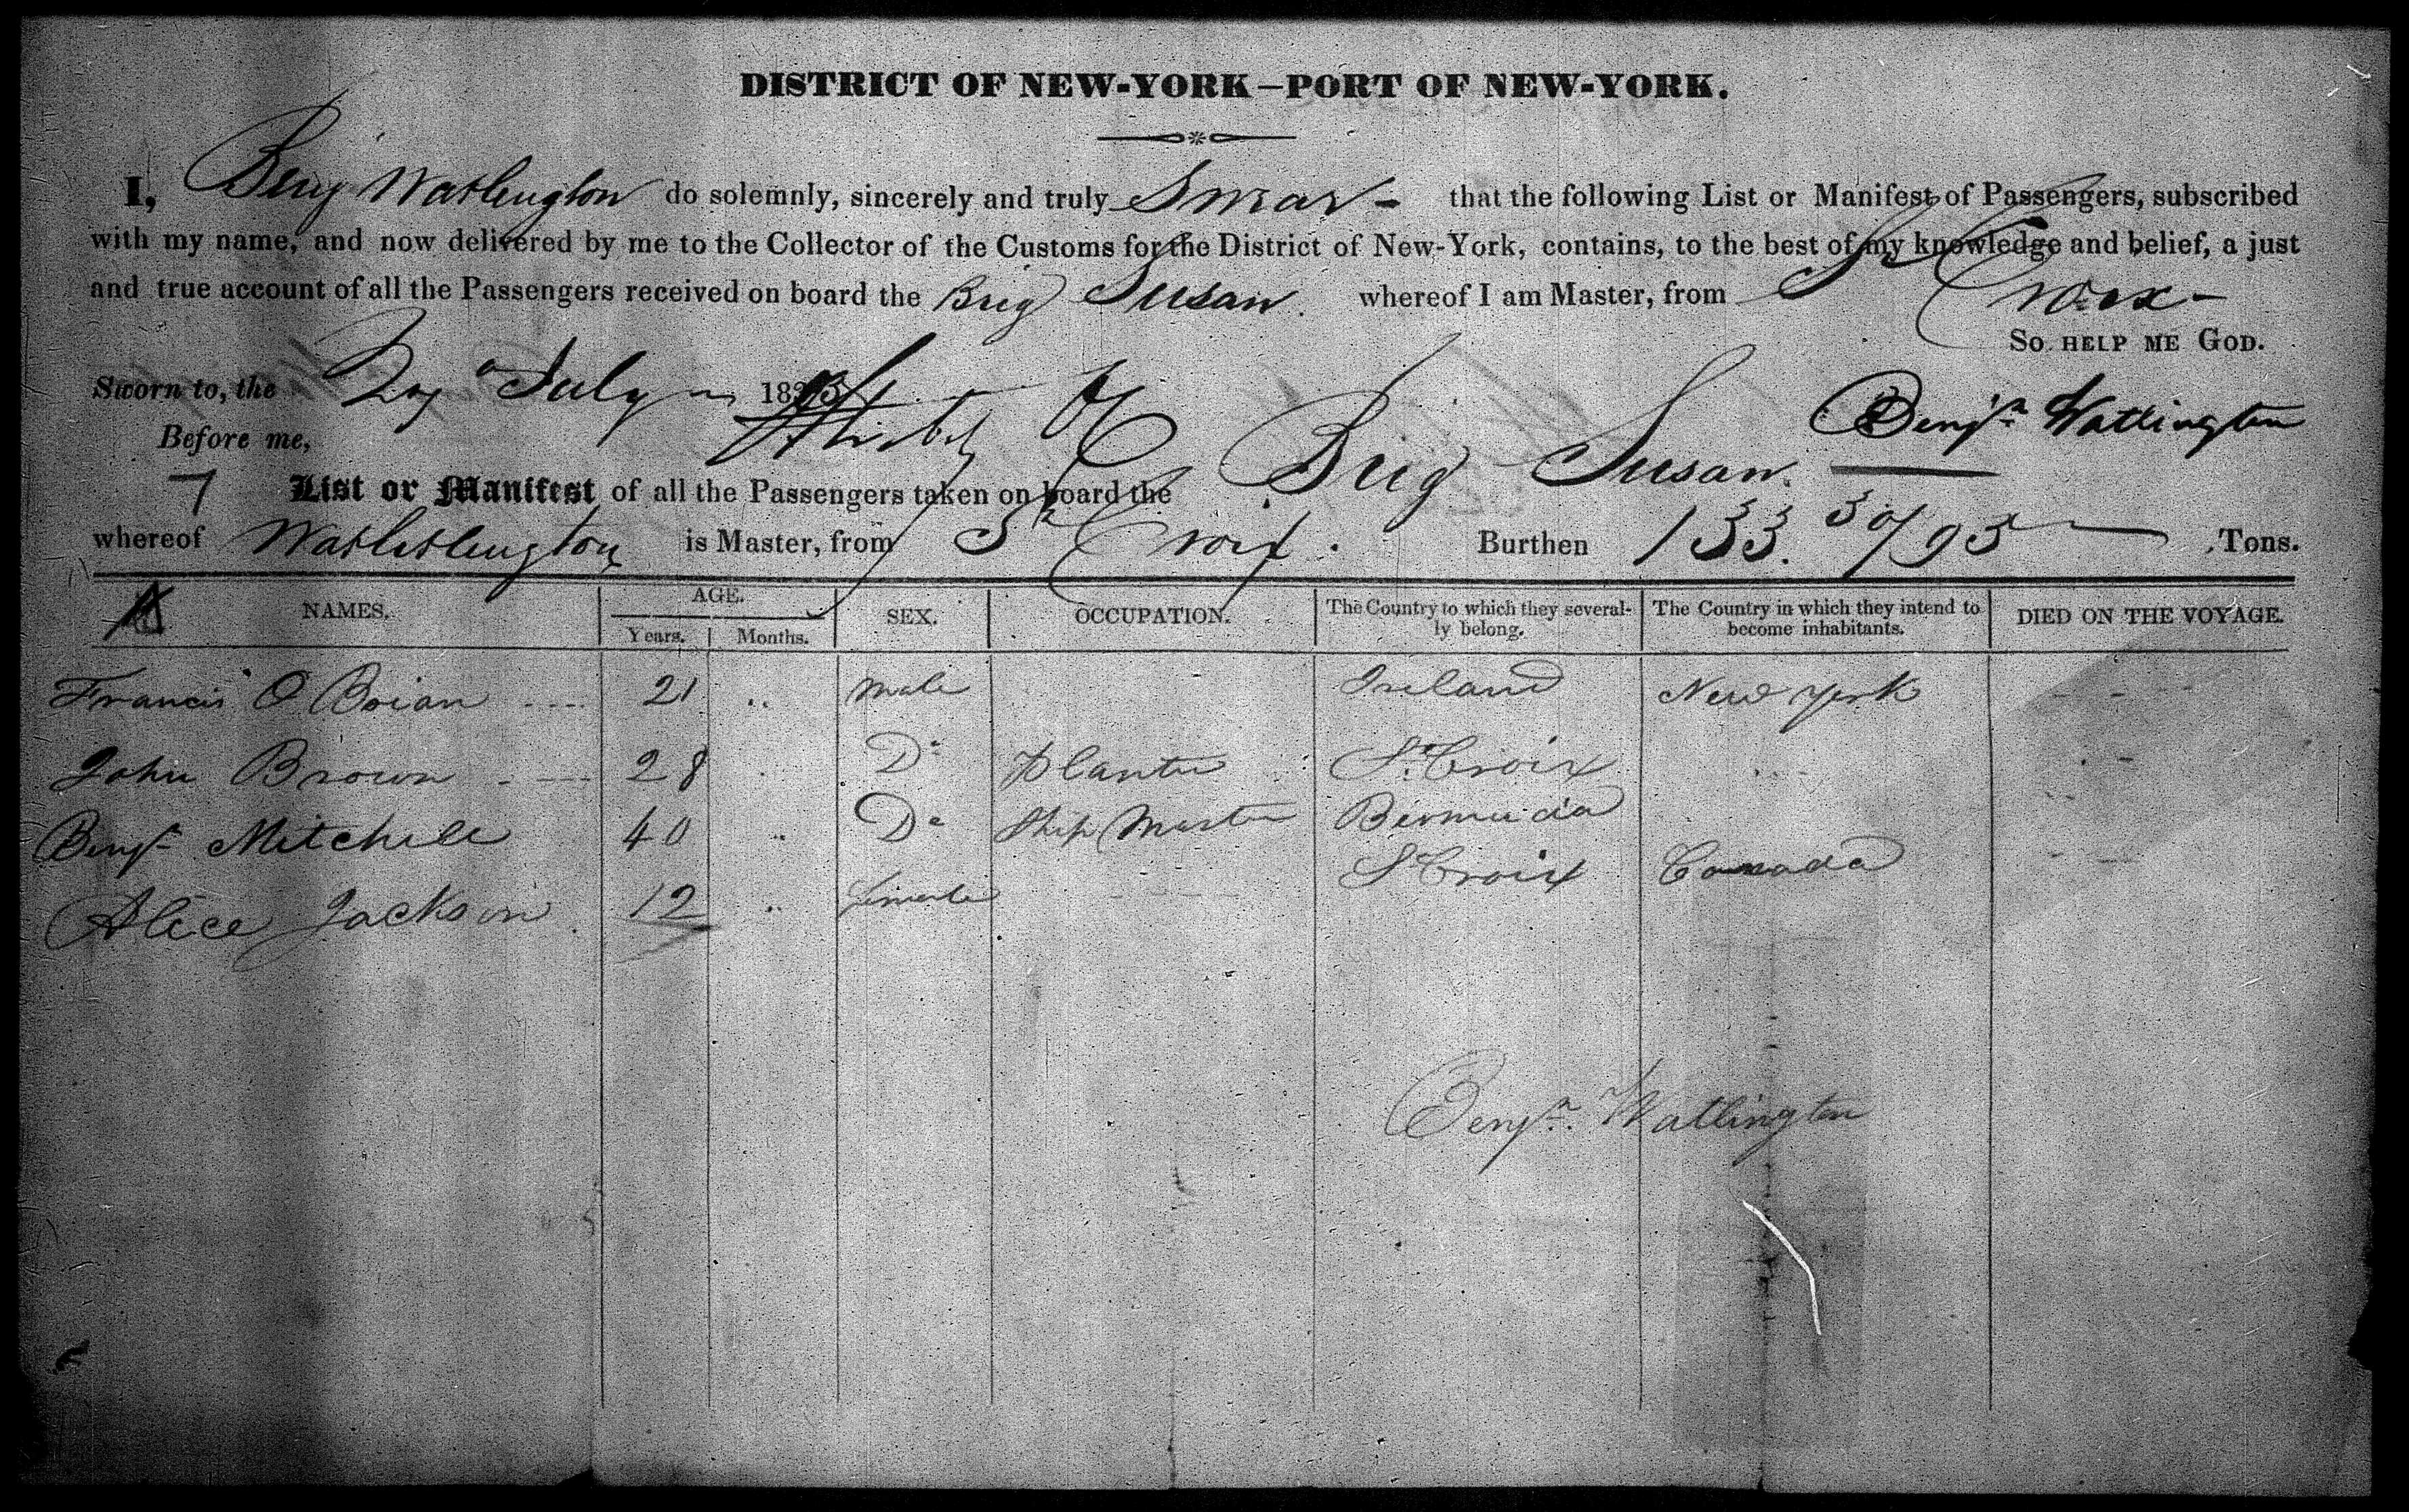 DISTRICT OF NEW-YORK—PORT OF NEW-YORK.
I, Benj Watlington do solemnly, sincerely and truly Swear - that the following List or Manifest of Passengers, subscribed
with my name, and now delivered by me to the Collector of the Customs for the District of New-York, contains, to the best of my knowledge and belief, a just
and true account of all the Passengers received on board the Brig Susan whereof I am Master, from St Croix -
SO HELP ME GOD.
Sworn to, the July 183
Benjn Watlington
Before me,
7 List or Manifest of all the Passengers taken on board the Brig Susan
whereof Watlington is Master, from St Croix. Burthen 133. 30/95 Tons.
NAMES. AGE. SEX. OCCUPATION. The Country to which they several- The Country in which they intend to DIED ON THE VOYAGE.
Years. Months. ly belong. become inhabitants.
Francis O Brian .... 21 .. male Ireland New York - -
John Brown - - - 28 Do Planter St Croix
Benjn Mitchell 40 .. Do Ship Master Bermuda
Alice Jackson 12 .. female St Croix Canada
Benjn. Watlington